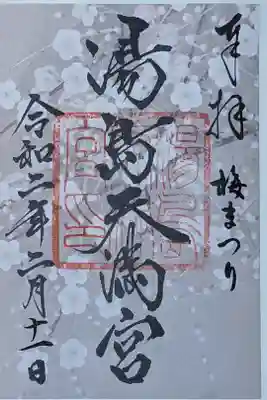 奉拝 梅まつり
湯島天満宮
令和二年二月十一日